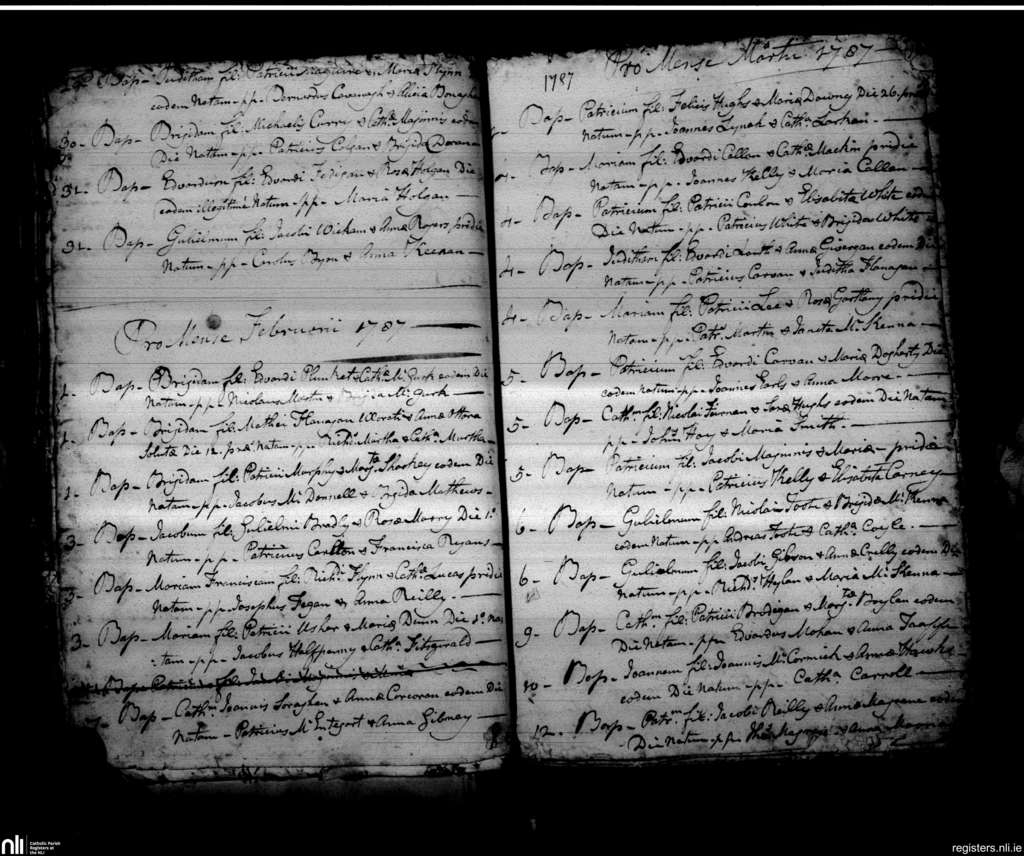 Bap- Juditham fil: Patricii Maguire & Maria Flynn
eodem Natam - pp - Bernardus Cavenagh & Alicia
30- Bap- Brijidam fil: Michaelis & Cath: eodem
Die Natam - pp - Patricius Colgan & Brijida Doran
31- Bap- Edvardum fil: Edvardi & Rosæ Holgan Die
eodem illegitimé Natum - pp - Maria Holgan
31- Bap- Gulielmum fil: Jacobi Wickam & Annæ Rogers pridie
Natum - pp - Carolus Byrn & Anna Keenan
Pro Mense Februarii 1787
1- Bap- Brijidam fil: Edvardi Plunket & Cathæ Mc Gurk eodem Die
Natam - pp - Nicolaus & Brijida Mc Gurk
1- Bap- Brijidam fil: Mathei Flanagan Uxorati & Annæ
Solutæ Die 12. præ Natam - pp - Richd Murtha & Catha Murtha
1- Bap- Brijidam fil: Patricii Murphy & Margtæ Sharkey eodem Die
Natam - pp - Jacobus Mc Donnell & Brijida Mathews
3- Bap- Jacobum fil: Gulielmi Bradly & Rosæ Die 1º
Natum - pp - Patricius Carlton & Francisca Ryans
3- Bap- Mariam Franciscam fil: Richdi Flynn & Cathæ Lucas pridie
Natam - pp - Josephus Fegan & Anna Reilly
3- Bap- Mariam fil: Patricii Usher & Mariæ Dunn Die 1º Na
: tam - pp - Jacobus Halfpenny & Catha Fitzgerald
Bap- Patricium fil: Jacobi
7- Bap- Cathm Joannis Soraghan & Annæ Corcoran eodem Die
Natam - Patricius Mc Entegart & Anna Gibney
Pro Mense Martii 1787
1787
Bap- Patricium fil: Felicis Hughs & Mariæ Downey Die 26.
Natum - pp - Joannes Lynch & Catha Larkin
Bap- Mariam fil: Edvardi Callan & Cathæ Mackin pridie
Natam - pp - Joannes Kelly & Maria Callan
4- Bap- Patricium fil: Patricii Conlon & Elisabita White
Die Natum - pp - Patricius White & Brijida White
4- Bap- Juditham fil: Edvardi & Annæ eodem Die
Natam - pp - Patricius Carvan & Juditha Flanagan
4- Bap- Mariam fil: Patricii Lee & Rosæ Gartlany pridie
Natam - pp - Patr: Martin & Mc Kenna
5- Bap- Patricium fil: Edvardi Carvan & Mariæ Dogherty Die
eodem natum - pp - Joannes Early & Anna
5- Bap- Cathm fil: Nicolai & Saræ Hughs eodem Die Natam
pp - Johns Hoy & Maria Smith
5- Bap- Patricium fil: Jacobi Magunis & Mariæ - pridie
Natum - pp - Patricius Kelly & Elisabita Carney
6- Bap- Gulielmum fil: Nicolai & Brijidæ Mc Kenna
eodem Natum - pp Andreas & Catha Coyle
6- Bap- Gulielmum fil: Jacobi Gibson & Annæ Crelly eodem Die
Natum - pp - Richds Hylan & Maria Mc Kenna
9- Bap- Cathm fil: Patricii Bradegan & Margtæ Boylan eodem
Die Natam - pp - Edvardus Mohan & Anna
10- Bap- Joannem fil: Joannis Mc Cormick & Annæ
eodem Die Natum - pp - Catha Carroll
12- Bap- Patrm fil: Jacobi Reilly & Annæ
Die Natum - pp - & Anna
nli
Catholic Parish
Registers at
the NLI
registers.nli.ie